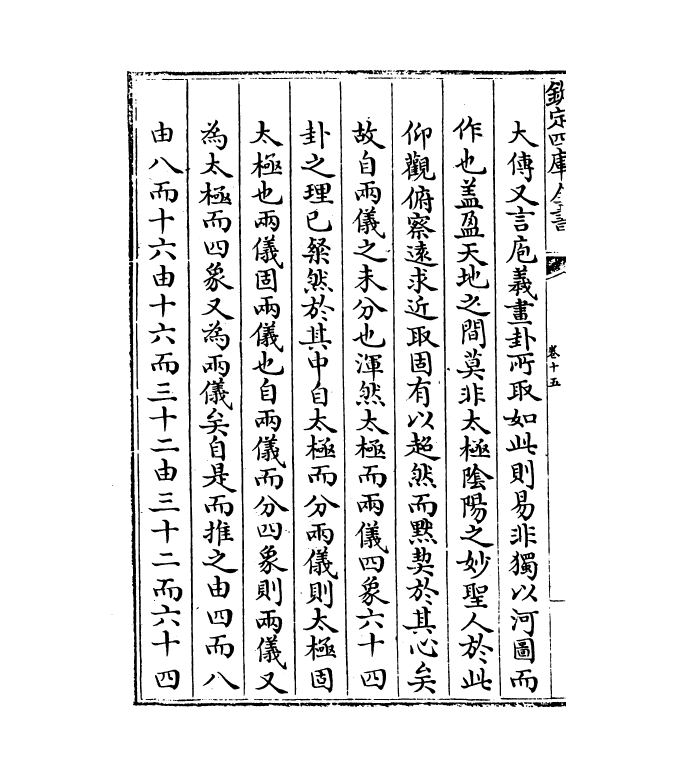 欽定四庫全書
卷十五
大傳又言庖羲畫卦所取如此則易非獨以河圖而
作也盖盈天地之間莫非太極陰陽之妙聖人於此
仰觀俯察逺求近取固有以超然而黙契於其心矣
故自兩儀之未分也渾然太極而兩儀四象六十四
卦之理已粲然於其中自太極而分兩儀則太極固
太極也兩儀固兩儀也自兩儀而分四象則兩儀又
為太極而四象又為兩儀矣自是而推之由四而八
由八而十六由十六而三十二由三十二而六十四